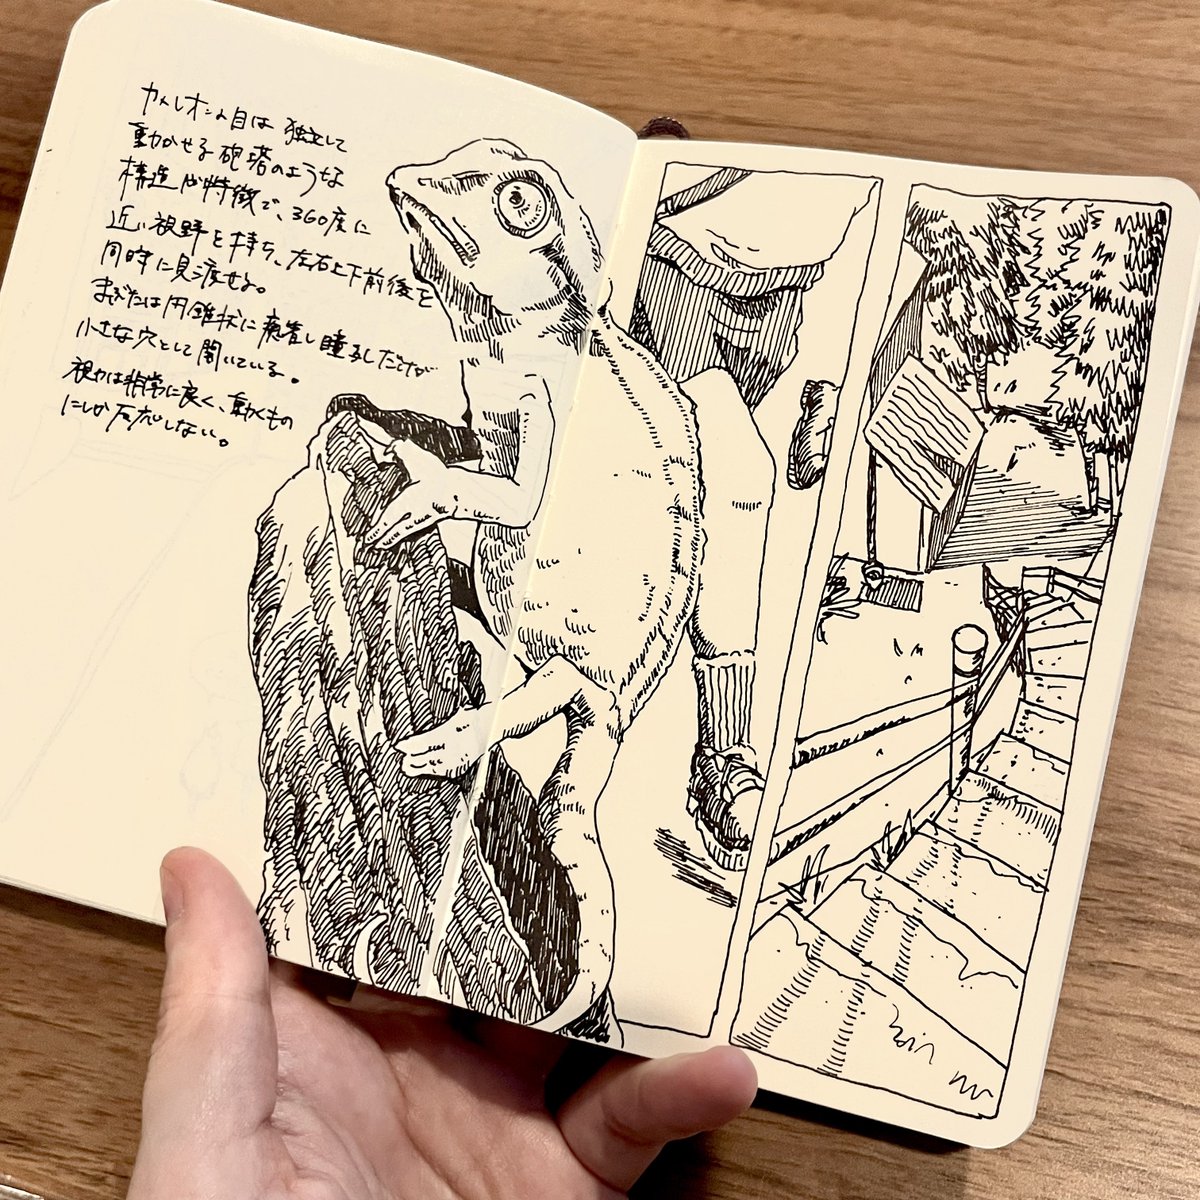 カメレオンの目は 独立して
動かせる砲塔のような
構造が特徴で、360度に
近い視野を持ち、左右上下前後を
同時に見渡せる。
まぶたは円錐状に癒着し瞳孔だけが
小さな穴として開いている。
視力は非常に良く、動くもの
にしか反応しない。